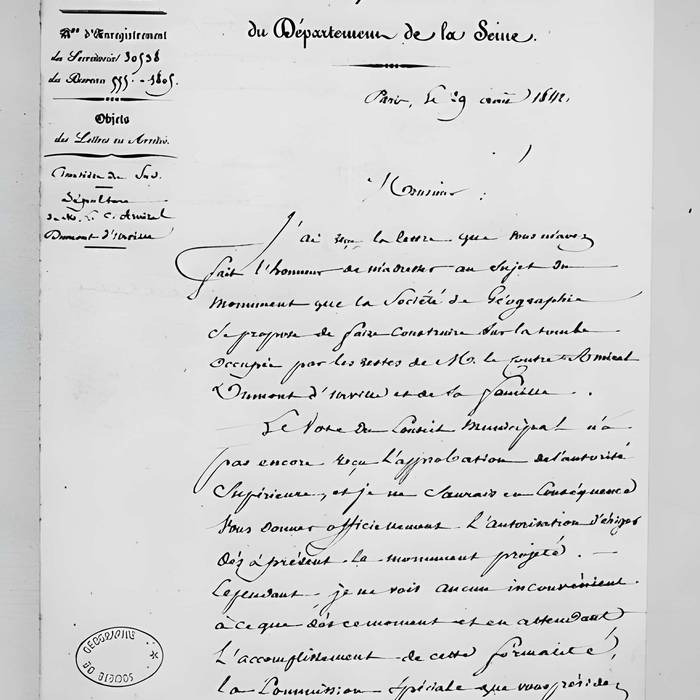 du Département de la Seine.
Nos d'Enregistrement
du Secrétariat 30538
du Bureau 555 - 1805.
Objets
des Lettres ou Arrêtés.
Cimetière du Sud.
Sépulture
de M. le C. Amiral
Dumont d'Urville
Paris, le 29 août 1842.
Monsieur :
J'ai reçu la lettre que vous m'avez
fait l'honneur de m'adresser au sujet du
monument que la Société de Géographie
se propose de faire construire sur la tombe
occupée par les restes de M. le Contre-Amiral
Dumont d'Urville et de sa famille.
Le vote du Conseil Municipal n'a
pas encore reçu l'approbation de l'autorité
Supérieure, et je ne saurais en conséquence
vous donner officiellement l'autorisation d'ériger
dès à présent le monument projeté.
Cependant je ne vois aucun inconvénient
à ce que dès ce moment et en attendant
l'accomplissement de cette formalité,
la Commission spéciale que vous présidez
GEOGRAPHIE
SOCIÉTÉ DE